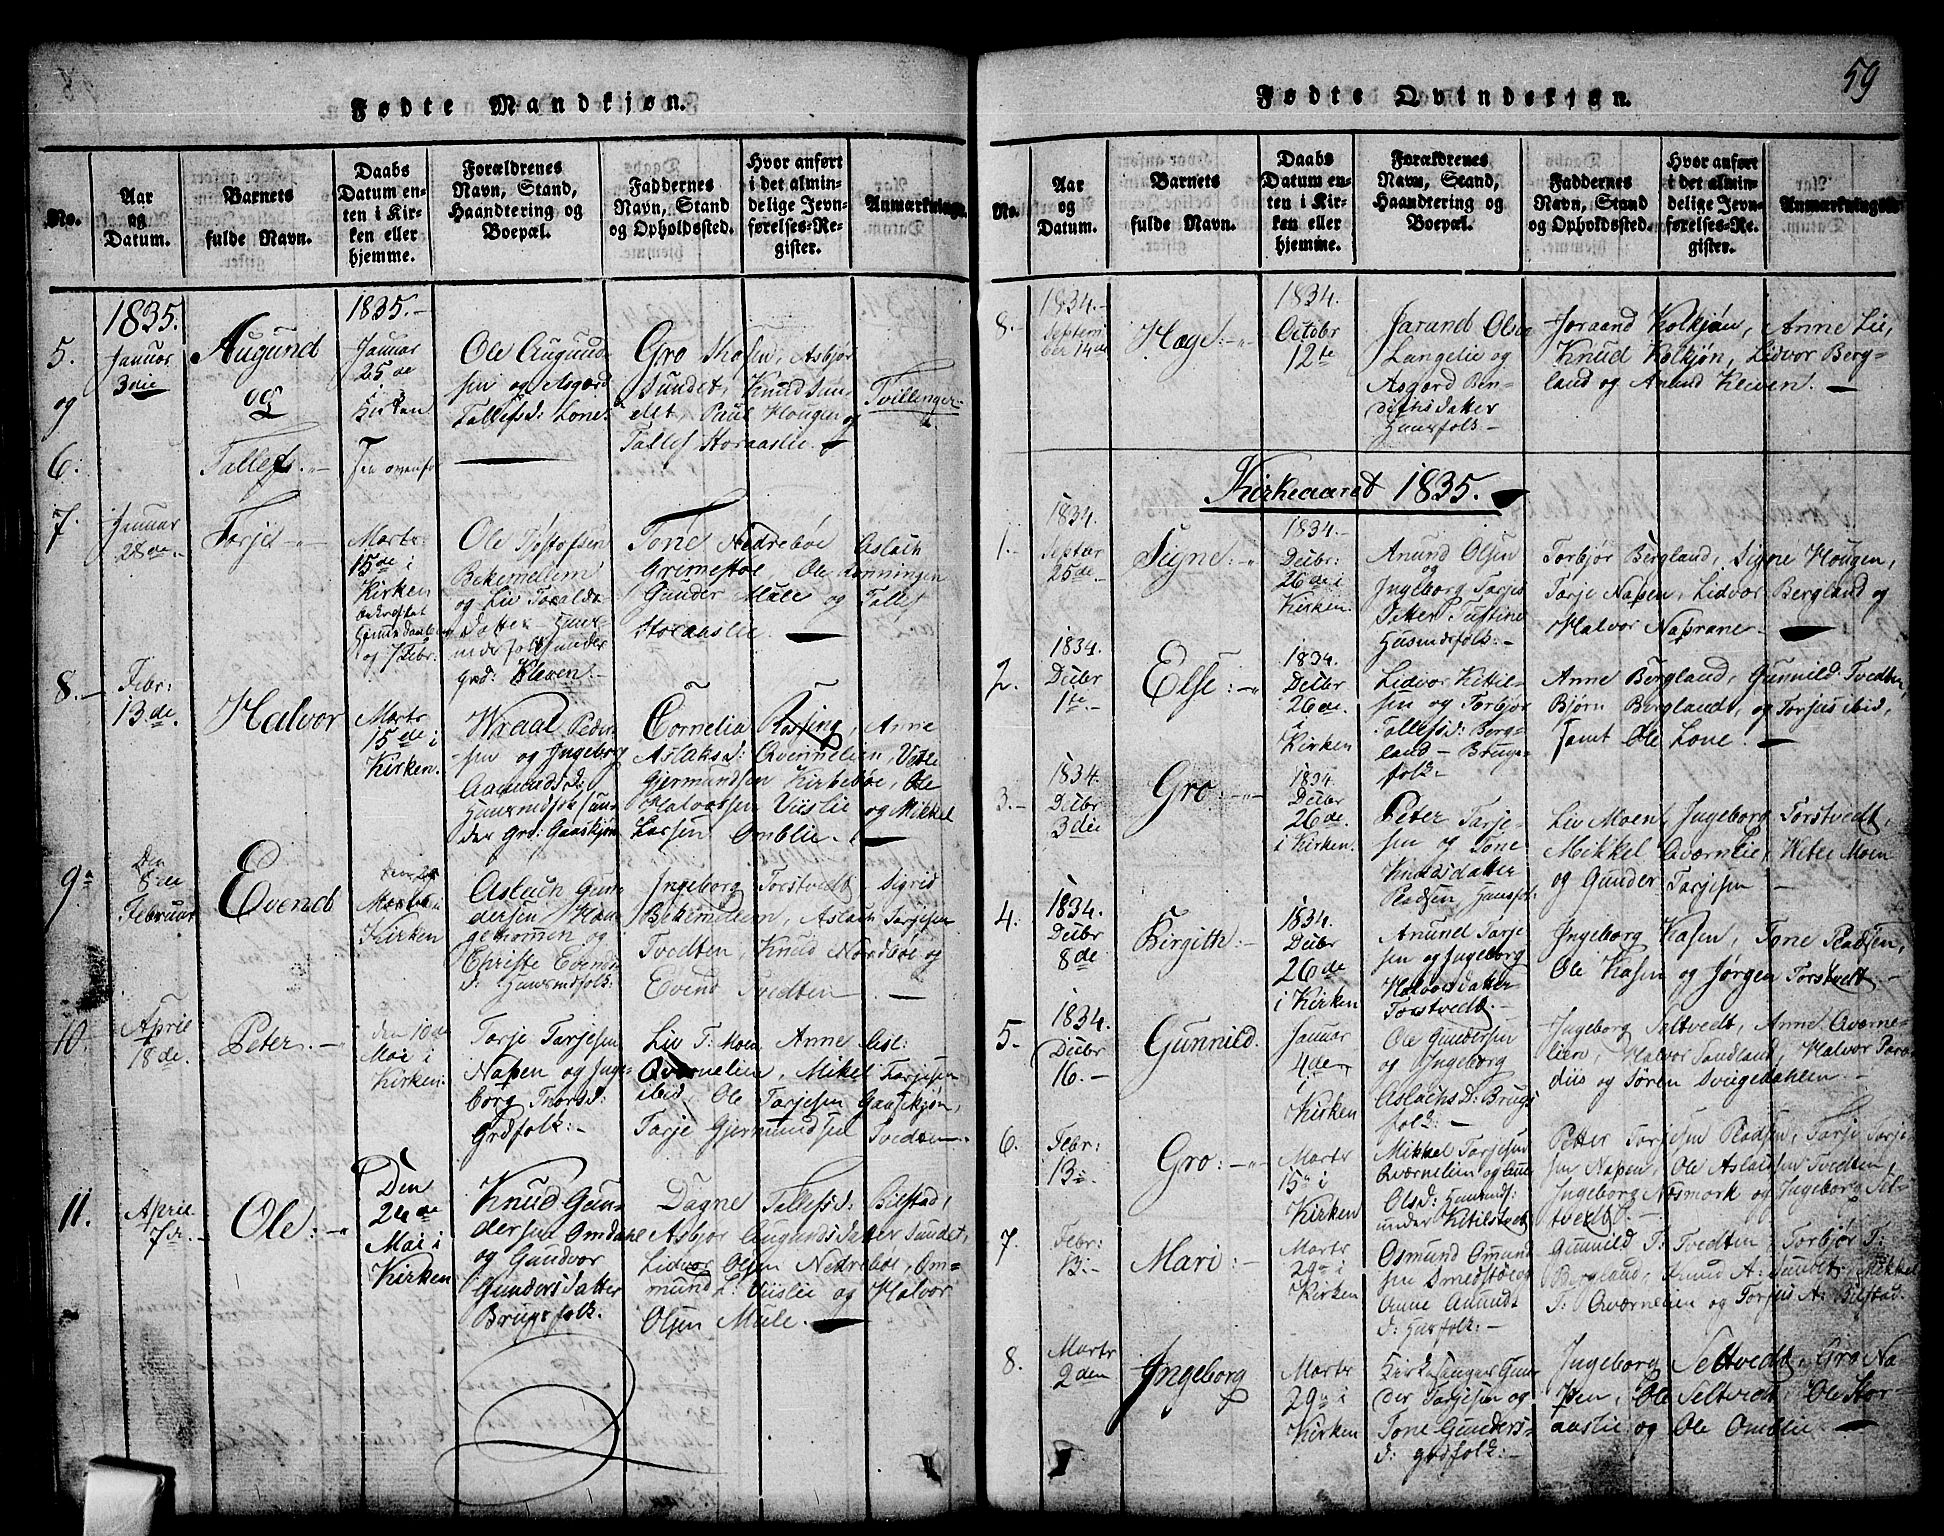 Fødte Mandkjøn.
No.
Aar
og
Datum.
Barnets
fulde Navn.
Daabs
Datum en-
ten i Kir-
ken eller
hjemme.
Forældrenes
Navn, Stand,
Haandtering og
Boepæl.
Faddernes
Navn, Stand
og Opholdssted.
Hvor anført
i det almin-
delige Jevn-
førelses-Re-
gister.
Anmærkninger.
5.
og
6.
1835.
Januar
3die
Augund
og
Tallefs.
1835.
Januar
25de
i
Kirken
See ovenfor
Ole Augund
sen og Asgerd
Tallefsd: Lone
Gro Skofen, Asbjør
Sundet, Knud Sun
det, Paul Hougen og
Tallef Storaaslie.
Tvillinger
7.
Januar
28de.
Tarje
Marts
15de i
Kirken
bekræftet
hjemmedaaben
og 7 Febr.
Ole Tostofsen
Bekemellem
og Liv Toralds
datter
Kleven.
Tone Nedreboe Aslach
Grimestøl Ole Rønningen
Gunder Mule og Tallef
Storaaslie.
8.
Febr:
13de.
Halvor
Marts
15de i
Kirken.
Wraal Peder
sen og Ingeborg
Aamundsd:
Huusmdfolk un
der Grd: Gaaskjøn
Cornelia Røssing, Anne
Aslaksd: Qvennelien, Vetle
Gjermundsen Kirkebøe, Ole
Halvorsen Viislie og Mikkel
Larsen Omblie.
9.
Den
8de
Februar
Evend
Den 29
Marts i
Kirken
Aslach Gun
dersen Hau
gemoen og
Christe Evends
d: Huusmdfolk.
Ingeborg Torstvedt Sigrid
Bekemellem, Aslach Tarjesen
Tvedten, Knud Nordbøe og
Evend Tvedten
10.
April
18de.
Peter.
den 10de
Mai i
Kirken.
Tarje Tarjesen
Napen og Inge
borg Thorsd:
Grdfolk:
Liv T: Moen Anne Gisl:
Qvernelien, Mikel Tarjesen
ibid, Ole Tarjesen Gaaskjøn,
Tarje Gjermundsen Tvedten.
11.
April
7de.
Ole:
Den
24de
Mai i
Kirken
Knud Gun
dersen Omdahl
og Gundvor
Gundersdatter
Brugsfolk.
Dagne Tallefsd: Bilstad,
Asbjør Augundsdatter Sundet,
Lidvor Olsen Nedrebøe, Om-
mund L: Viislie og Halvor
Olsen Mule.
59
Fødte Qvindekjøn.
No.
Aar
og
Datum.
Barnets
fulde Navn.
Daabs
Datum en-
ten i Kir-
ken eller
hjemme.
Forældrenes
Navn, Stand,
Haandtering og
Boepæl.
Faddernes
Navn, Stand
og Opholdssted.
Hvor anført
i det almin-
delige Jevn-
førelses-Re-
gister.
Anmærkninger
8.
1834.
Septem
ber 14de
Hæge:
1834.
October
12te
Jarand Olsen
Langelie og
Asgerd Ben-
dichsdatter
Huusfolk
Joraand Kolkjøn, Anne Lie,
Knud Kolkjøn, Lidvor Berg-
land og Anund Kleven.
Kirkeaaret 1835.
1.
1834.
Septbr
25de
Signe:
1834.
Decbr:
26de i
Kirken
Anund Olsen
og
Ingeborg Tarjes
datter
Husmdfolk:
Torbjør Bergland, Signe Hougen,
Tarje Napen, Lidvor Bergland og
Halvor Naprane
2.
1834.
Decbr
1te
Else:
1834.
Decbr
26de.
i
Kirken
Lidvor Ketil-
sen og Torbjør
Tallefsd: Berg-
land Brugs-
folk:
Anne Bergland, Gunnild Tvedten,
Bjørn Bergland, og Torjus ibid,
samt Ole Lone.
3.
1834.
Decbr
3die
Gro:
1834.
Decbr
26de.
i Kirken.
Peter Tarje-
sen og Tone
Knudsdatter
Pladsen Huusfolk:
Liv Moen, Ingeborg Torstvedt,
Mikkel Qvernlie, Vetle Moen
og Gunder Tarjesen
4.
1834.
Decbr
8de
Birgith:
1834.
Decbr
26de
i Kirken
Anund Tarje
sen og Ingeborg
Halvorsdatter
Torstvedt.
Ingeborg Kasen, Tone Pladsen,
Ole Kasen og Jørgen Torstvedt.
5.
1834.
Decbr
16.
Gunnild.
Januar
4de
i
Kirken
Ole Gundersen
og Ingeborg
Aslachsd: Brugs
folk:
Ingeborg Seltvedt, Anne Qverne-
lien, Halvor Sandland, Halvor Para
diis og Søren Dvugedahlen.
6.
Febr:
13.
Gro:
Marts
15 i
Kirken
Mikkel Tarjesen
Qvernelien og Anne
Olsd: Huusmdf:
under Ketilstvedt
Petter Tarjesen Pladsen, Tarje Tarje-
sen Napen, Ole Aslaksen Tvedten,
Ingeborg Næsmark og Ingeborg Sel-
tvedt.
7.
Febr:
13.
Mari:
Marts
29 i
Kirken
Osmund Omund
sen
Anne Anundt
d: Huusfolk:
Gunnild T: Tvedten, Torbjør T:
Bergland, Knud A: Sundet, Mikkel
T: Qvernelien og Torjus A: Bilstad.
8.
Marts
2den
Ingeborg
Marts
29 i
Kirken
Kirkesanger Gun
der Tarjesen og
Tone Gunders-
d: grdfolk:
Ingeborg Seltvedt, Gro Na-
pen, Ole Seltvedt, Ole Stor-
aaslie og Ole Omblie.